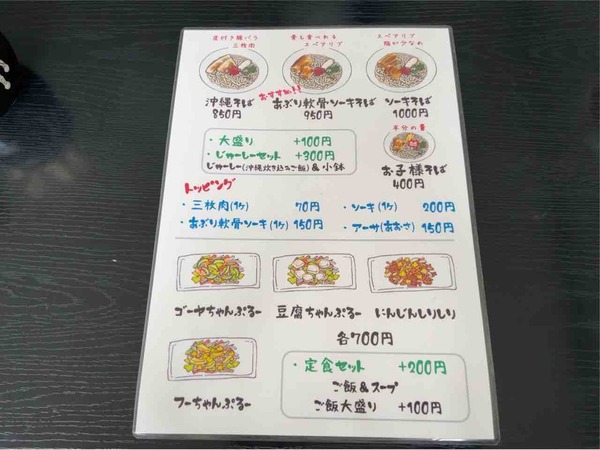 皮付き豚バラ
三枚肉
骨も食べれる
スペアリブ
スペアリブ
脂が少なめ
沖縄そば
850円
おすすめ!!
あぶり軟骨ソーキそば
950円
ソーキそば
1000円
・大盛り +100円
・じゅーしーセット +300円
じゅーしー(沖縄炊き込みご飯)&小鉢
半分の量
お子様そば
400円
トッピング
・三枚肉(1ケ) 70円
・ソーキ(1ケ) 200円
・あぶり軟骨ソーキ(1ケ) 150円
・アーサ(あおさ) 150円
ゴーヤちゃんぷるー
豆腐ちゃんぷるー
にんじんしりしり
各700円
フーちゃんぷるー
・定食セット +200円
ご飯&スープ
ご飯大盛り +100円